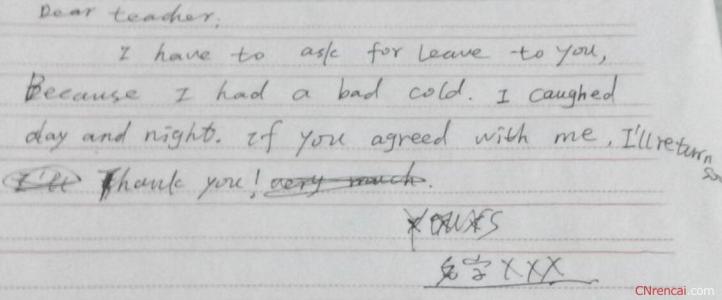 Dear teacher,
I have to ask for leave to you,
Because I had a bad cold. I caughed
day and night. If you agreed with me, I'll return
Thank you!
YOURS
名字XXX
CNrencai.com